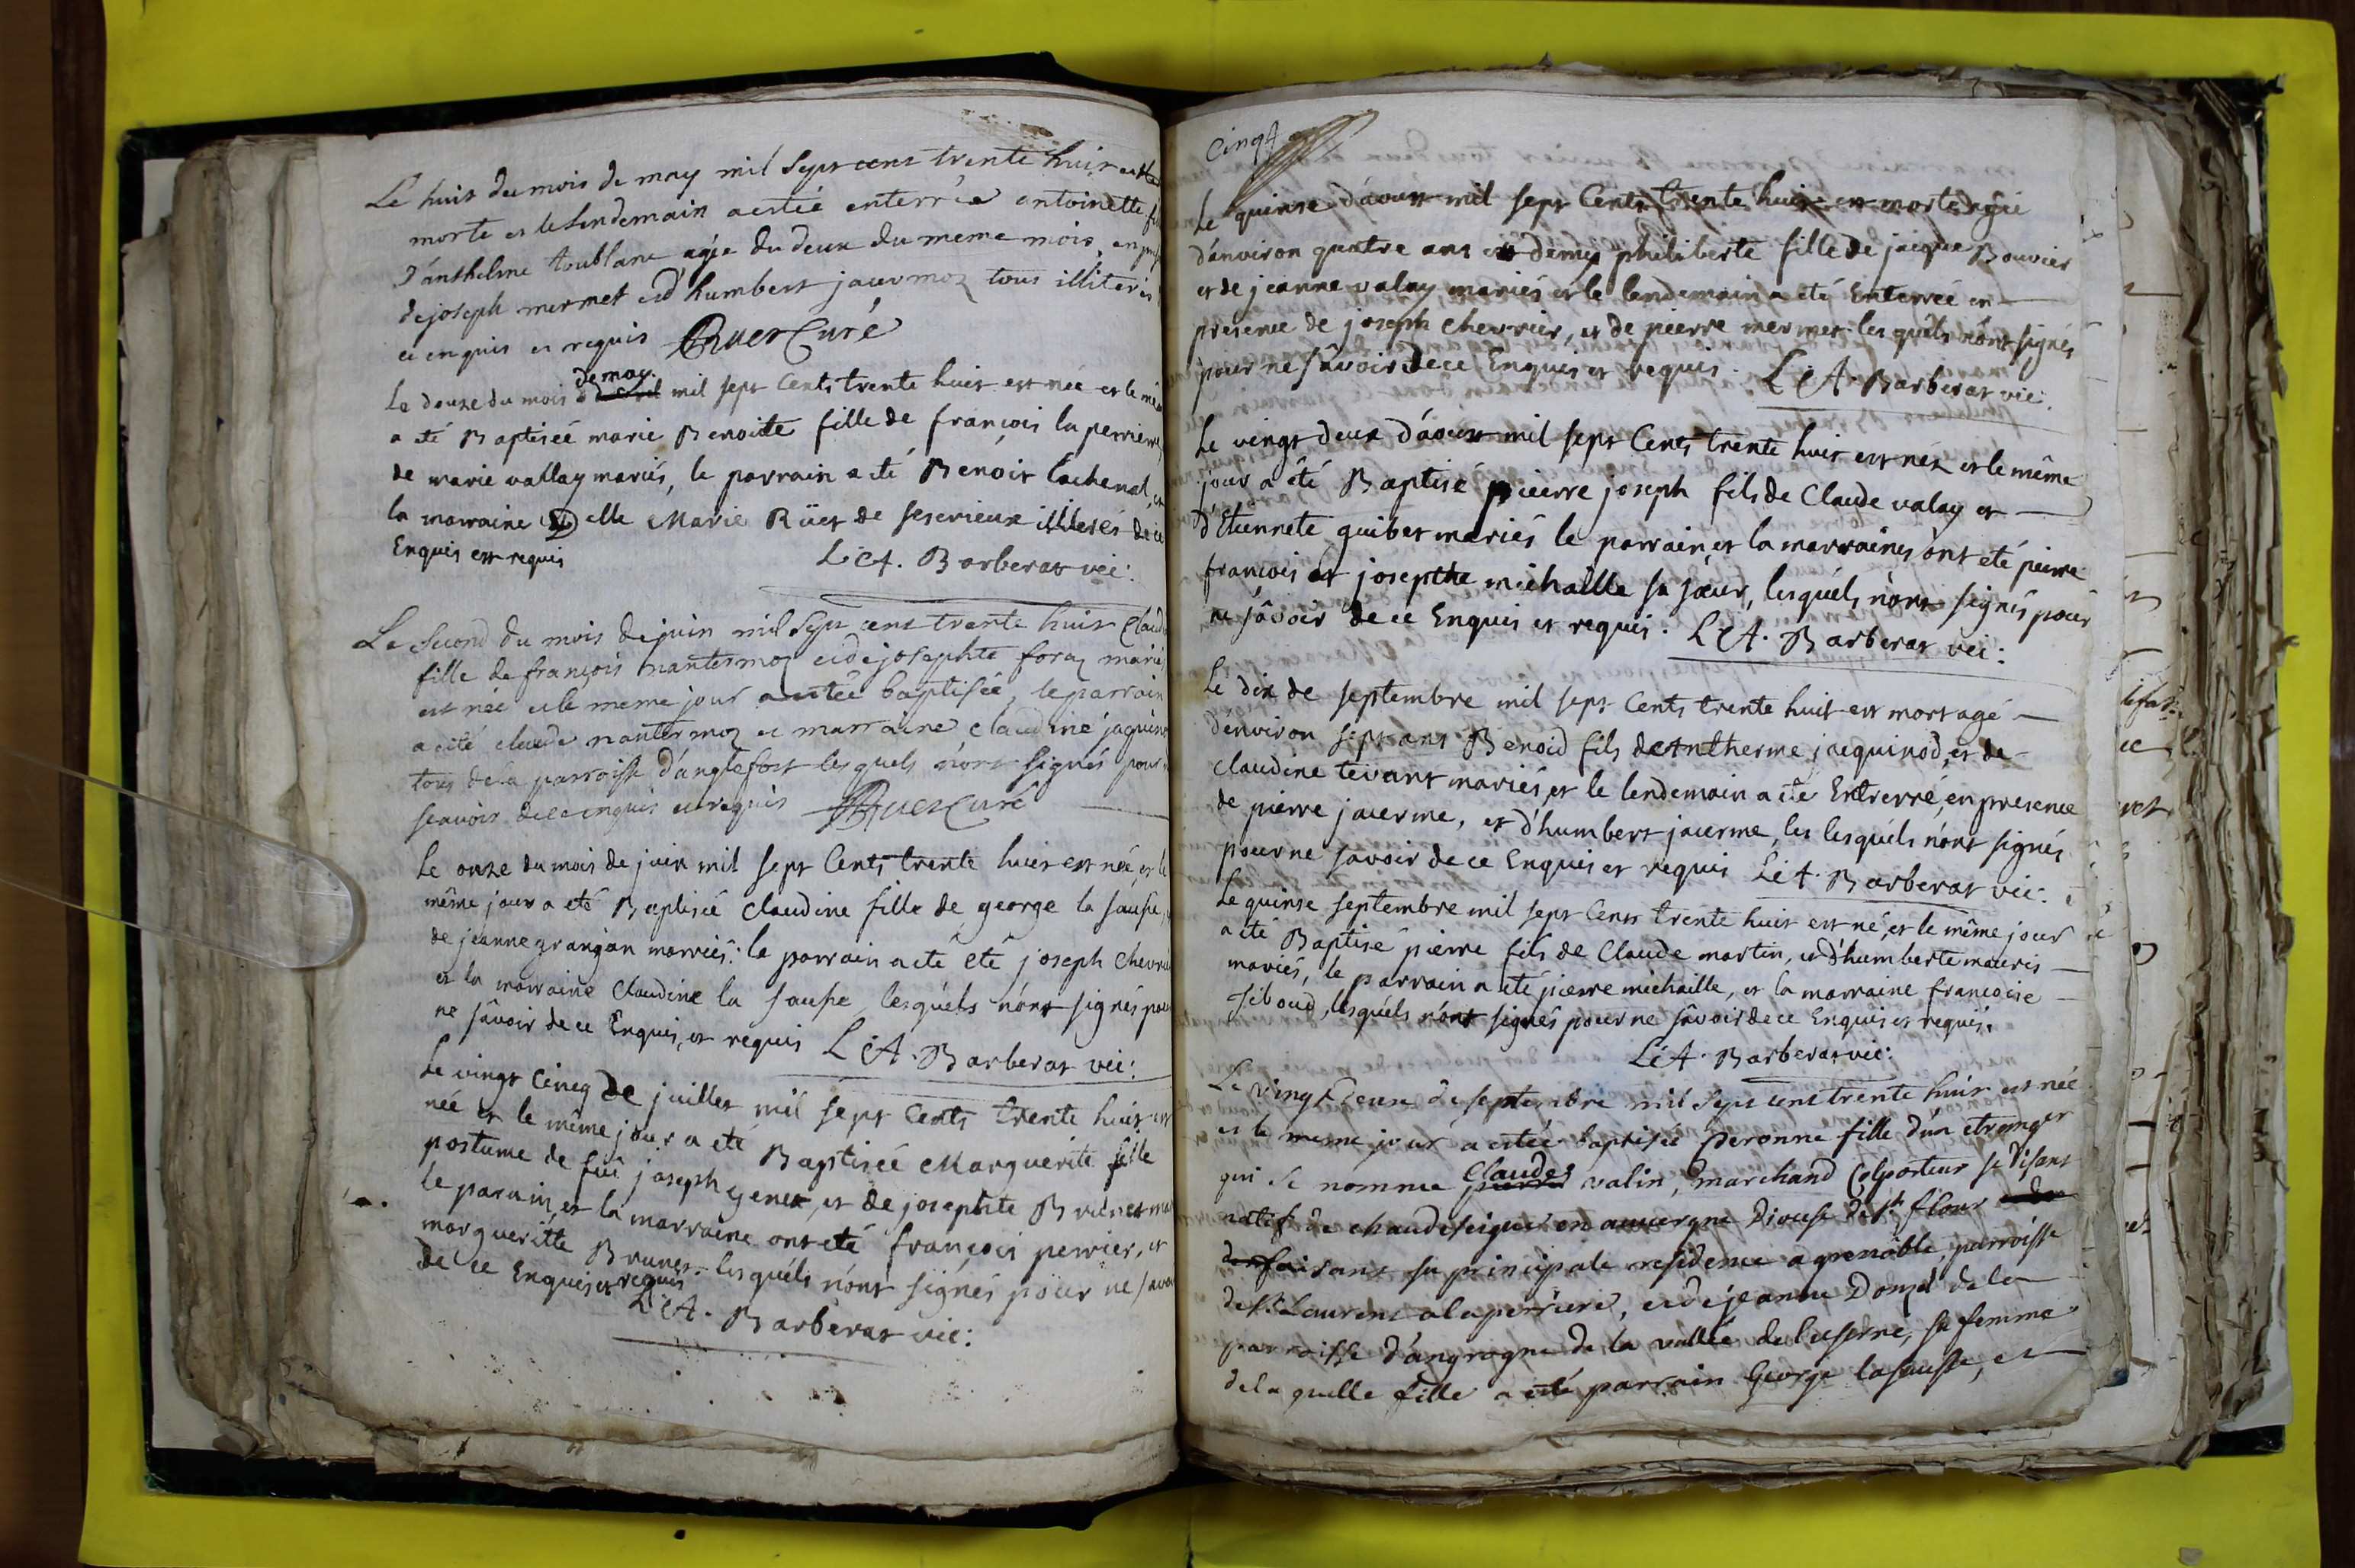 Le huit du mois de may mil sept cent trente huit est
morte et le lendemain a estée enterrée antoinette
d'anthelme toublanc agée du deux du meme mois, en
de joseph mermet et d'humbert jacermoz tous illiterés
ce enquis et requis Ruet Curé
Le douze du mois de may mil sept Cents trente huit est née et le
a eté Baptiseé marie Benoite fille de françois la perriere
de marie vallay mariés, le parrain a eté Benoit Cochenal, et
la marraine Delle Marie Rüet de seserieux illiterés de ce
Enquis est requis
L'A. Barberat vic:
Le second du mois de juin mil sept cent trente huit
fille de françois nantermoz et de josephte foraz mariés
est née et le meme jour a estée baptisée, le parrain
a esté claude nantermoz et marraine claudine
tous de la parroisse d'anglefort lesquels n'ont signés pour
scavoir de ce enquis et requis Ruet Curé
Le onze du mois de juin mil sept Cents trente huit est née, et le
même jour a eté Baptiseé Claudine fille de george la sause,
de jeanne granjan marriés: le parrain a eté eté joseph
et la marraine Claudine la sause lesquéls n'ont signés pour
ne sávoir de ce Enquis, et requis L'A. Barberat vic:
Le vingt Cineq de juillet mil sept Cents trente huit est
née et le même jour a eté Baptiseé Marguerite fille
postume de fuë joseph Genet, et de josephte Brunet
le parain, et la marraine ont eté françois perrier, et
margueritte Brunet lesquéls n'ont signés pour ne
de ce Enquis et requis
L'A. Barberat vic:
Cinq
Le quinse d'aoust mil sept Cents trente huit est morte agée
d'anviron quatre ans et demy philiberte fille de jacque Bouvier
et de jeanne valay mariés et le lendemain a eté Enterreé en
presence de joseph chevrier, et de pierre mermet lesquéls n'ont signés
pour ne sávoir de ce Enquis et requis. L'A. Barberat vic:
Le vingt deux d'aoust mil sept Cents trente huit est néz et le même
jour a êté Baptisé pieerre joseph fils de Claude valay et
d'Etiennete guibet mariés le parrain et la marraines ont eté pierre
françois et josepthe michaille sa sœur, lesquéls n'ont signés pour
ne sávoir de ce Enquis et requis. L'A. Barberat vic:
Le dix de septembre mil sept Cents trente huit est mort agé
d'environ sept ans Benoid fils de Antherme jacquinod, et de
Claudine tevant mariés, et le lendemain a eté Entrerré, en presence
de pierre jacerme, et d'humbert jacerme, les lesquéls n'ont signés
pour ne savoir de ce Enquis et requis L'A. Barberat vic:
Le quinse septembre mil sept Cents trente huit est né, et le même jour
a eté Baptisé pierre fils de Claude martin, et d'humberte mauris
mariés, le parrain a eté pierre michaille, et la marraine francoise
Jiboud, lesquéls n'ont signés pour ne sávoir de ce Enquis et requis.
L'A. Barberat vic:
Le vingt deux de septembre mil sept cent trente huit est née
et le meme jour a estée baptisée peronne fille d'un etranger
qui se nomme pierre Claude valin, marchand Colporteur se disant
natif de chaudeseigues en auvergne Diouse de St flour
faisant sa principale residence a grenoble parroisse
de St Laurent a la perriere, et de jeanne Donzel de la
parroisse d'angrogne de la vallée de luserne, sa femme
de la quelle fille a esté parrain George lasausse, et